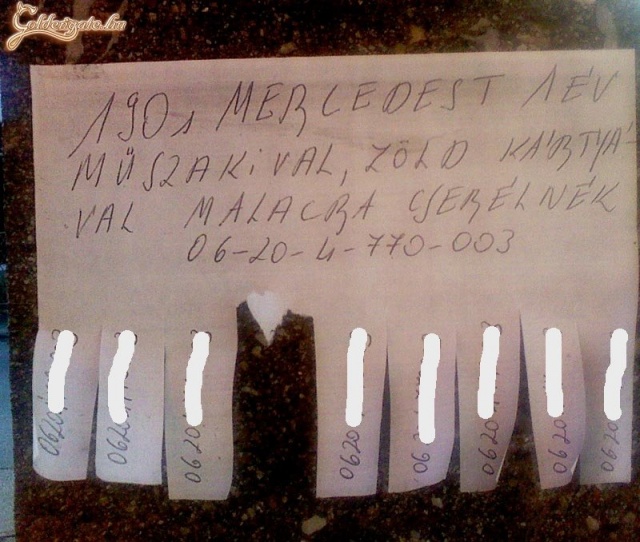 1901 MERCEDEST 1 ÉV
MŰSZAKIVAL, ZÖLD KÁRTYÁ-
VAL MALACRA CSERÉLNÉK
06-20-4-770-003
0620
0620
0620
0620
06
0620
0620
0620